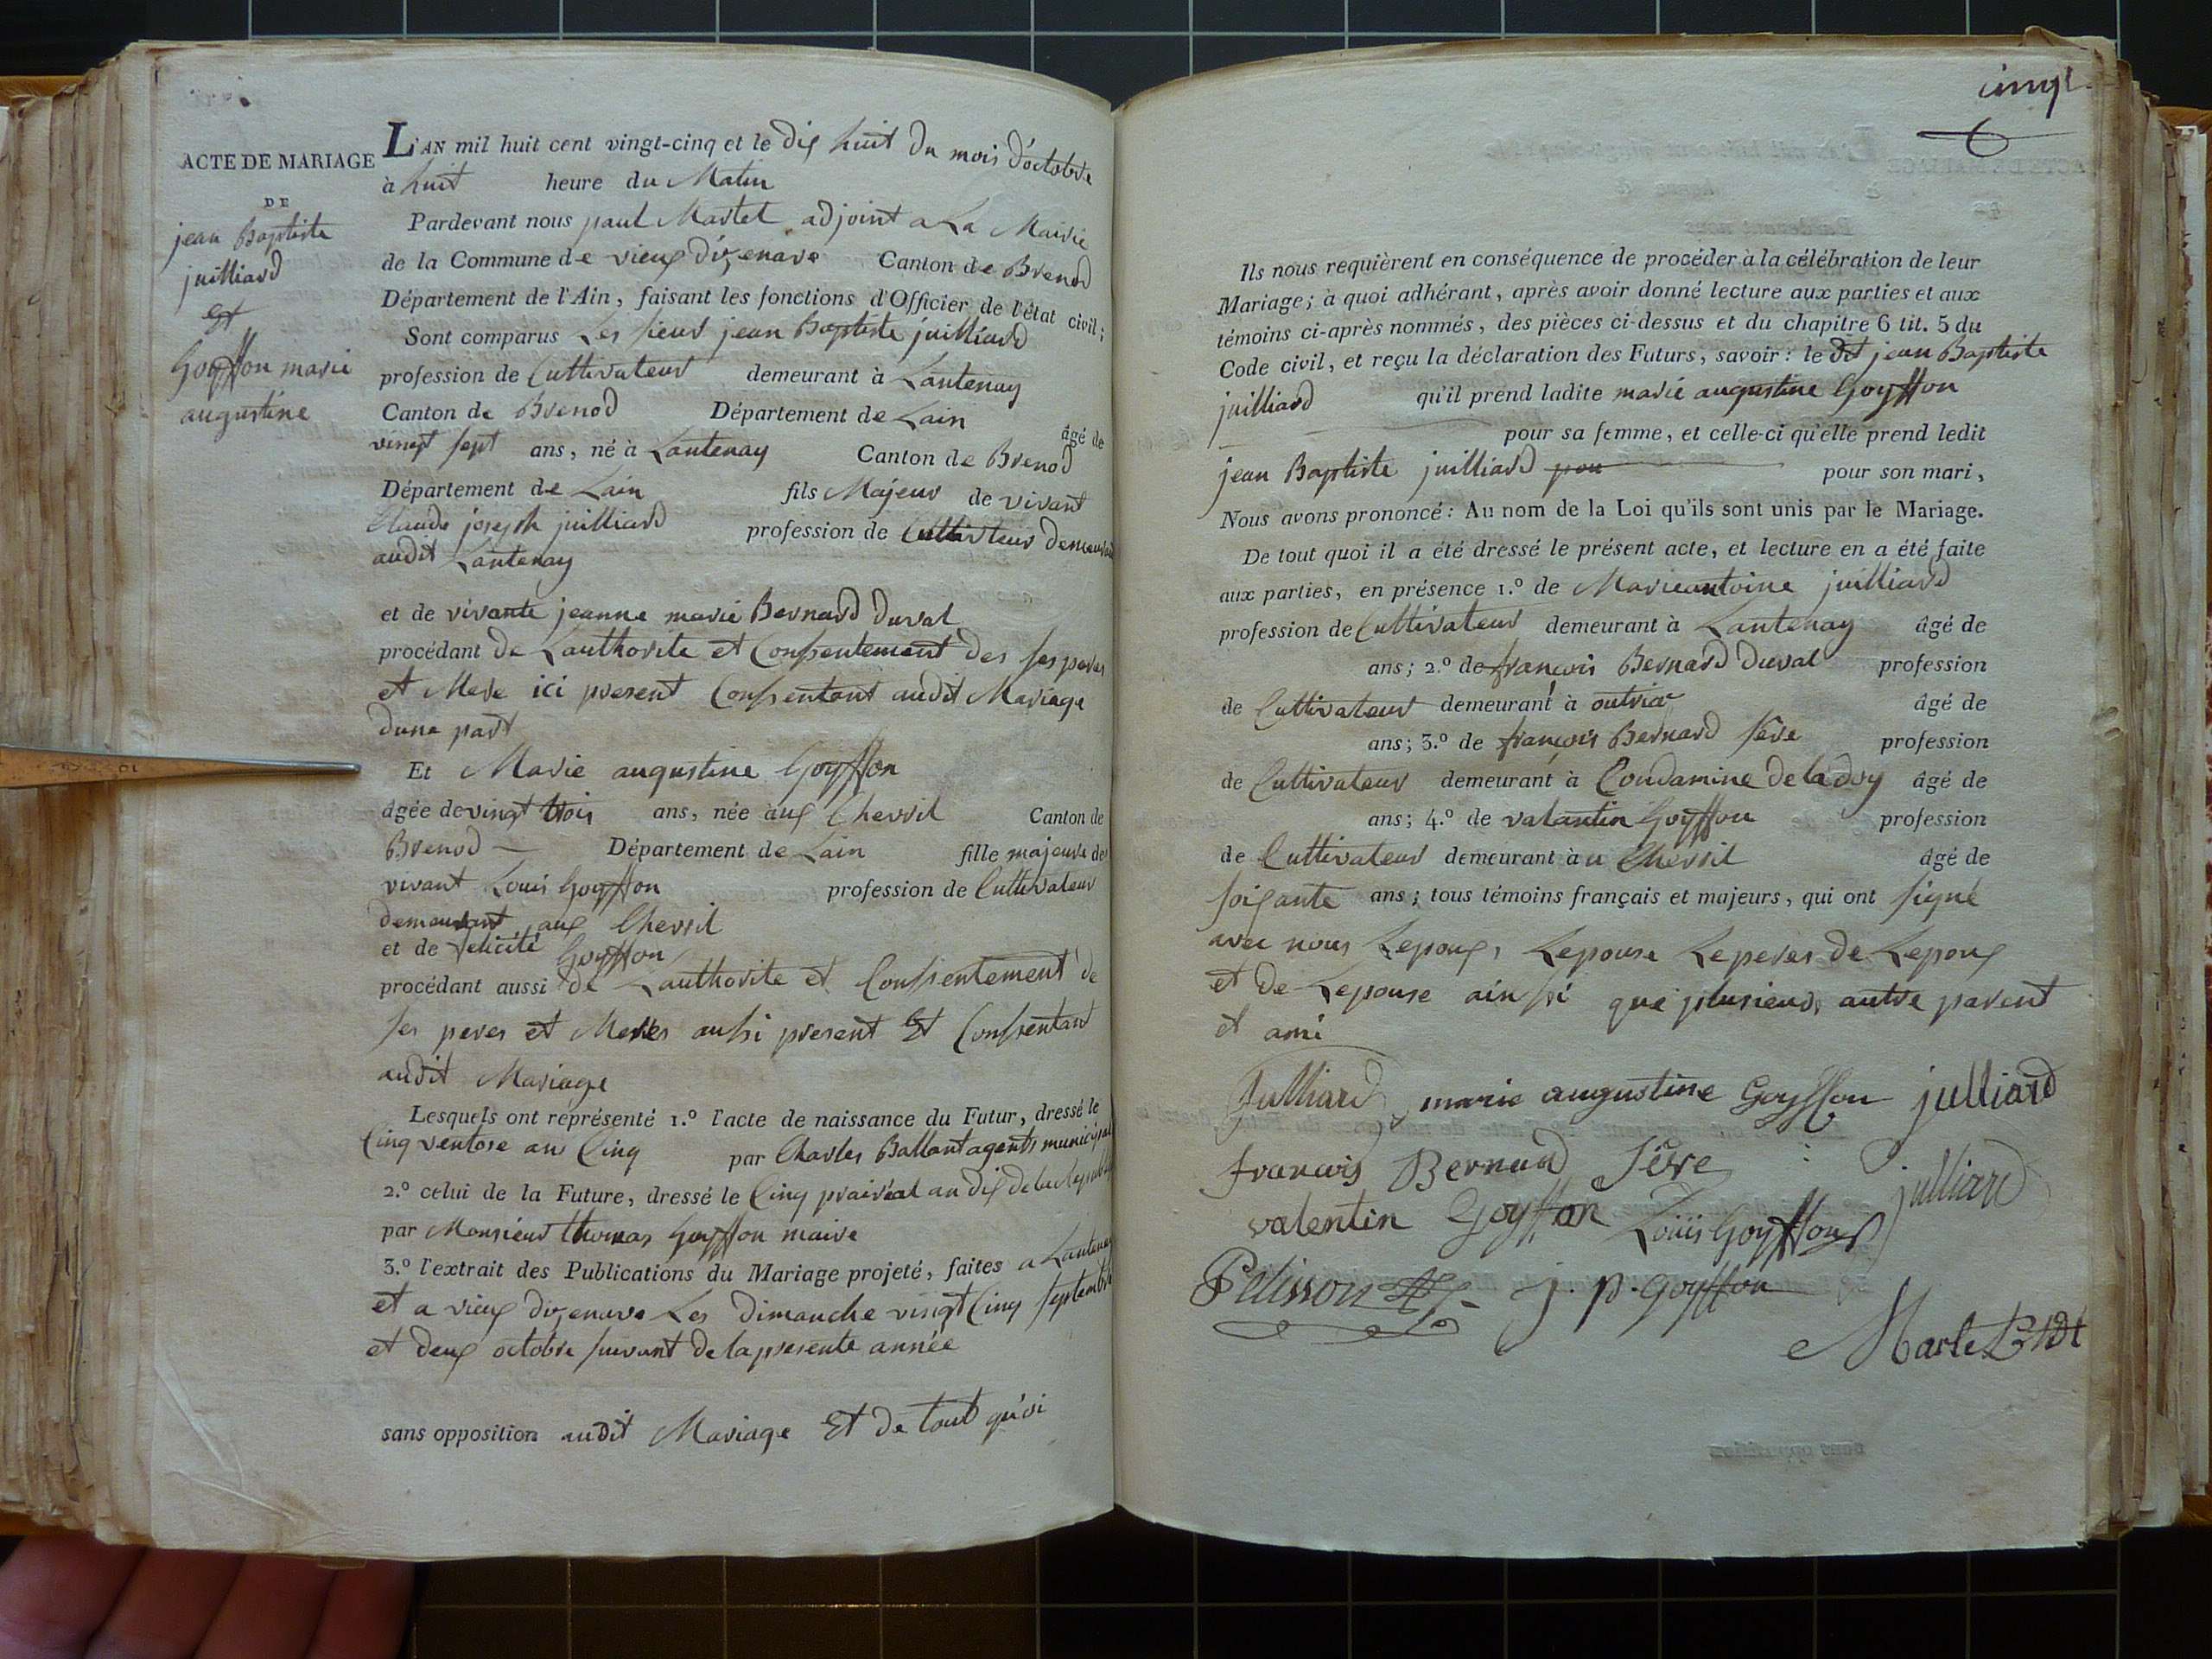 ACTE DE MARIAGE
DE
jean Baptiste
juilliard
Et
Goyffon marie
augustine
L'AN mil huit cent vingt-cinq et le dix huit du mois d'octobre
à huit heure du Matin
Pardevant nous paul Martel adjoint a La Mairie
de la Commune de vieux dizenave Canton de Brenod
Département de l'Ain, faisant les fonctions d'Officier de l'état civil;
Sont comparus Les sieur jean Baptiste juilliard
profession de Cultivateur demeurant à Lantenay
Canton de Brenod Département de Lain âgé de
vingt sept ans, né à Lantenay Canton de Brenod
Département de Lain fils Majeur de vivant
Claude joseph juilliard profession de Cultivteur demeurant
audit Lantenay
et de vivante jeanne marie Bernard Duval
procédant de Lauthorite et Consentement des ses peres
et Mere ici present Consentant audit Mariage
dune part
Et Marie augustine Goyffon
âgée de vingt trois ans, née aux Chevril Canton de
Brenod Département de Lain fille majeure de
vivant Louis Goyffon profession de Cultivateur
demeurant aux Chevril
et de felicité Goyffon
procédant aussi de Lauthorite et Consentement de
ses peres et Meres aussi present Et Consentant
audit Mariage
Lesquels ont représenté 1.º l'acte de naissance du Futur, dressé le
Cinq ventose an Cinq par Charles Ballant agents municipal
2.º celui de la Future, dressé le Cinq prairéal an dix de la republ
par Monsieur thomas Goyffon maire
3.º l'extrait des Publications du Mariage projeté, faites a Lantenay
et a vieux dizenave Les dimanche vingt Cinq septembre
et deux octobre suivant de la presente année
sans opposition audit Mariage Et de tout quoi
cinq
Ils nous requièrent en conséquence de procéder à la célébration de leur
Mariage; à quoi adhérant, après avoir donné lecture aux parties et aux
témoins ci-après nommés, des pièces ci-dessus et du chapitre 6 tit. 5 du
Code civil, et reçu la déclaration des Futurs, savoir: le dit jean Baptiste
juilliard qu'il prend ladite marie augustine Goyffon
pour sa femme, et celle-ci qu'elle prend ledit
jean Baptiste juilliard pou pour son mari,
Nous avons prononcé: Au nom de la Loi qu'ils sont unis par le Mariage.
De tout quoi il a été dressé le présent acte, et lecture en a été faite
aux parties, en présence 1.º de Marieantoine juilliard
profession de Cultivateur demeurant à Lantenay âgé de
ans; 2.º de françois Bernard Duval profession
de Cultivateur demeurant à outria âgé de
ans; 3.º de françois Bernard sève profession
de Cultivateur demeurant à Condamine de la doy âgé de
ans; 4.º de valantin Goyffon profession
de Cultivateur demeurant à u Chevril âgé de
soixante ans; tous témoins français et majeurs, qui ont signé
avec nous Lepoux, Lepouse Leperes de Lepoux
et de Lepouse ainssi que plusieurs autre parent
et ami
Julliard marie augustine Goyffon julliard
francois Bernard Sève
julliard
valentin Goyffon Louis Goyffon
Pelisson j. p. Goyffon
Martel Adt